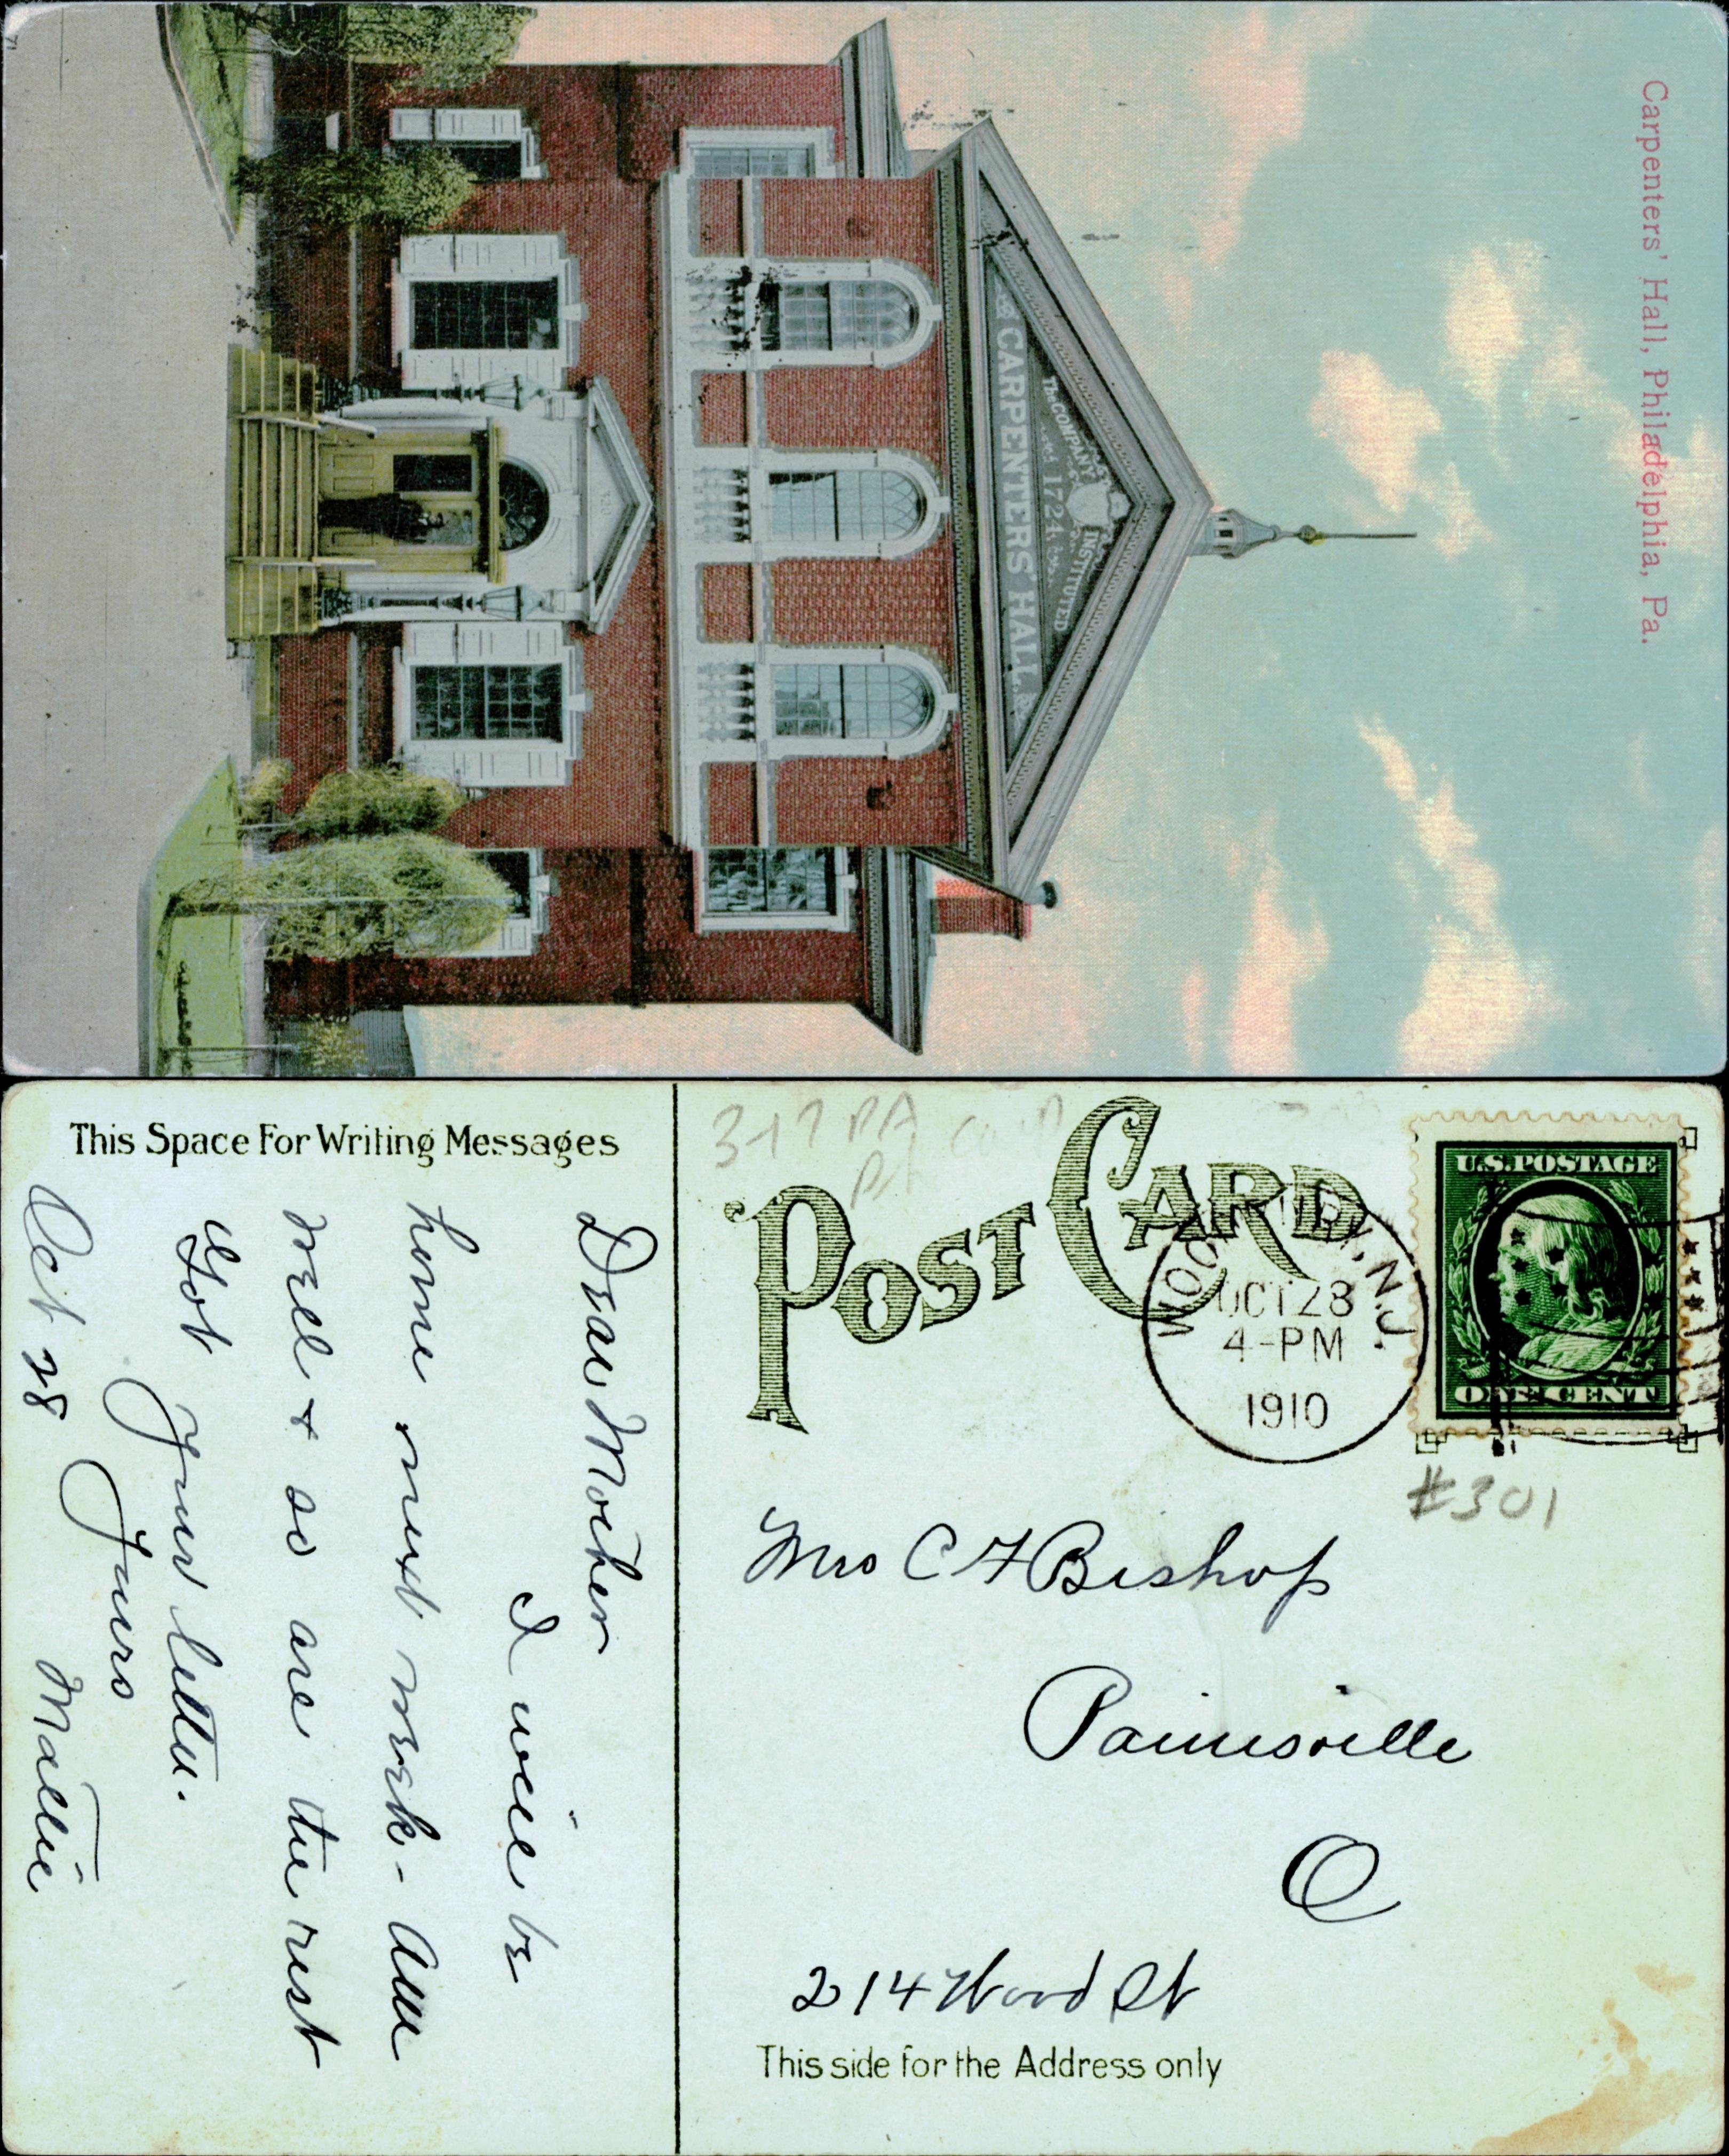 Carpenters' Hall, Philadelphia, Pa.
The COMPANY INSTITUTED
1724
CARPENTERS' HALL
This Space For Writing Messages
Dear Mother
I will be
home next week - Am
well & so are the rest
Got your letter.
Yours
Oct 28 Mattie
317 PA
PA
POST CARD
N.J.
OCT 28
4-PM
1910
U.S. POSTAGE
ONE CENT
#301
Mrs C F Bishop
Painesville
O
214 Wood St
This side for the Address only